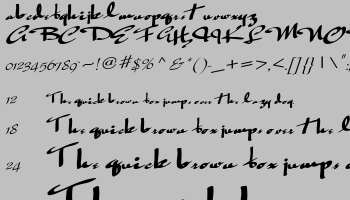 abcdefghijklmnopqrsTuvwxyz
ABCDEFGHIJKLMNO
0123456789~!@#$%^&*()-_+=>,<.[]{}|\";
12 The quick brown fox jumps over the lazy dog
18 The quick brown fox jumps over the l
24 The quick brown fox jumps o